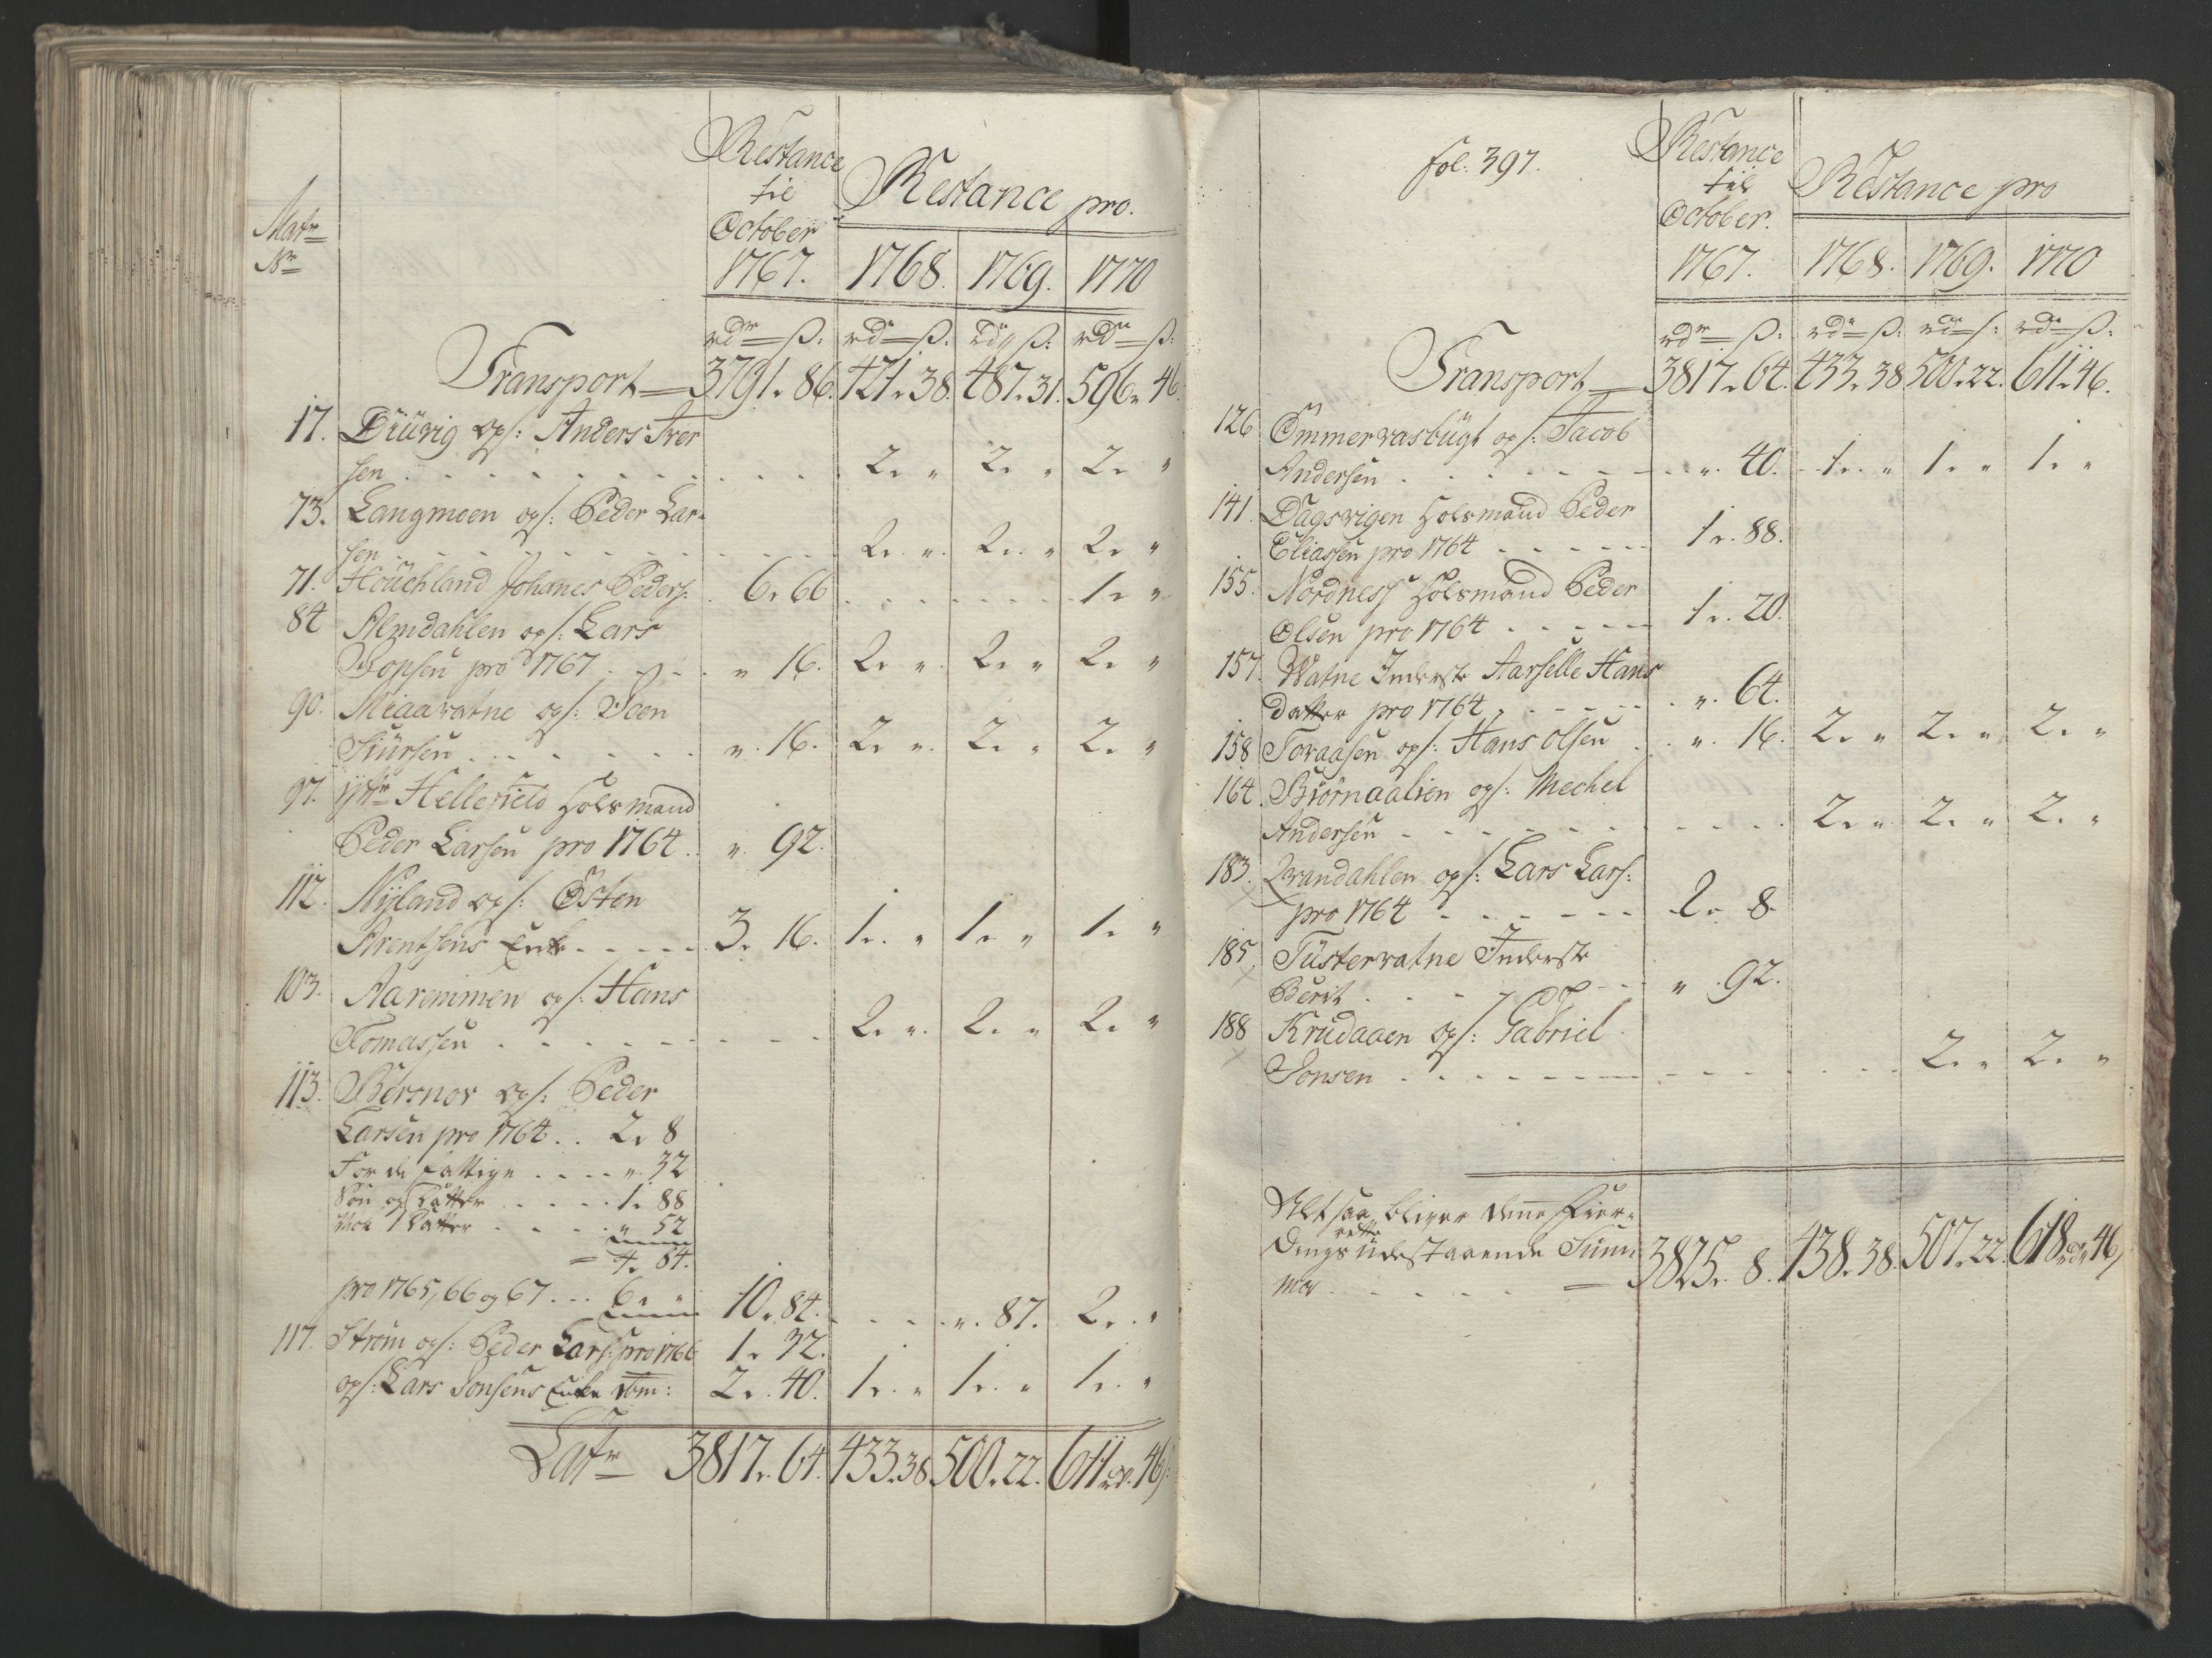 Restance
til
October
1767.
Restance pro.
1768. 1769. 1770
Matr
Nr
rdr ß: rdr ß: rdr ß: rdr ß:
Transport 3791. 86. 421. 38. 487. 31. 596. 46.
17. Diürig ops: Anders Iver
sen . . . . . . 2. " 2. " 2. "
73. Langmoen ops: Peder Lar-
sen . . . . . . 2. " 2. " 2. "
71. Houchland Johanes Peders: 6. 66 . . . . 1. "
84 Almdahlen ops: Lars
Topsen pro 1767 . . . " 16. 2. " 2. " 2. "
90. Miaavatne ops: Soen
Siursen . . . . . . " 16. 2. " 2. " 2. "
97. ytr Hellefield Holsmand
Peder Larsen pro 1764 . . " 92.
112. Nyland ops: Østen
Arentsens Enke . . . . 3. 16. 1. " 1. " 1. "
103. Aaremmen ops: Hans
Tomassen . . . . . . 2. " 2. " 2. "
113. Børsnos ops: Peder
Larsen pro 1764 . . 2. 8
For de fattige . . . . " 32
Søn og Datter . . . . 1. 88
nok 1 Datter . . . . " 52
= 4. 84.
pro 1765, 66 og 67 . . . 6. " 10. 84. . . . " 87. 2. "
117. Strøm ops: Peder Lars: pro 1766 1. 32.
ops: Lars Jonsens Enke ibm: 2. 40. 1. " 1. " 1. "
Latr 3817. 64. 433. 38 500. 22. 611 rdr. 46 ß
fol. 397.
Restance
til
October.
1767.
Restance pro
1768. 1769. 1770
rdr ß: rdr ß: rdr ß: rdr ß:
Transport 3817. 64. 433. 38 500. 22. 611. 46.
126 Ømmervasbügt ops: Jacob
Andersen . . . . . . " 40. 1. " 1. " 1. "
141. Dagsvigen Holsmand Peder
Eliassen pro 1764 . . . . . 1. 88.
155. Nordness Holsmand Peder
Olsen pro 1764 . . . . . 1. 20.
157. Watne Inderste Aarselle Hans
datter pro 1764 . . . . . " 64.
158 Toraasen ops: Hans Olsen . . " 16. 2. " 2. " 2. "
164. Biørnaalien ops: Mechel
Andersen . . . . . . 2. " 2. " 2. "
183. Qvandahlen ops: Lars Lars:
pro 1764 . . . . . . 2. 8
185. Tüstervatne Inderste
Berit . . . . . . " 92.
188 Krudaaen ops: Gabriel
Jonsen . . . . . . 2. " 2. "
Altsaa bliver denne Fier-
rette
dings udestaaende Sum-
ma . . . . . = 3825. 8. 438. 38. 507. 22. 618 rdr 46 ß